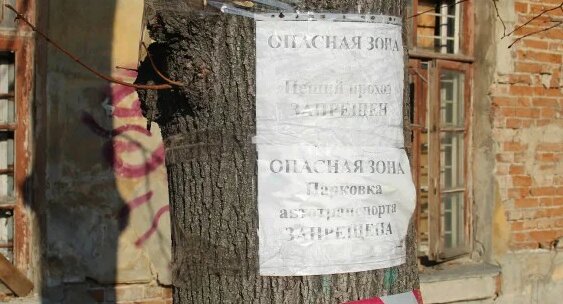 ОПАСНАЯ ЗОНА
Пеший проход
ЗАПРЕЩЕН
ОПАСНАЯ ЗОНА
Парковка
автотранспорта
ЗАПРЕЩЕНА